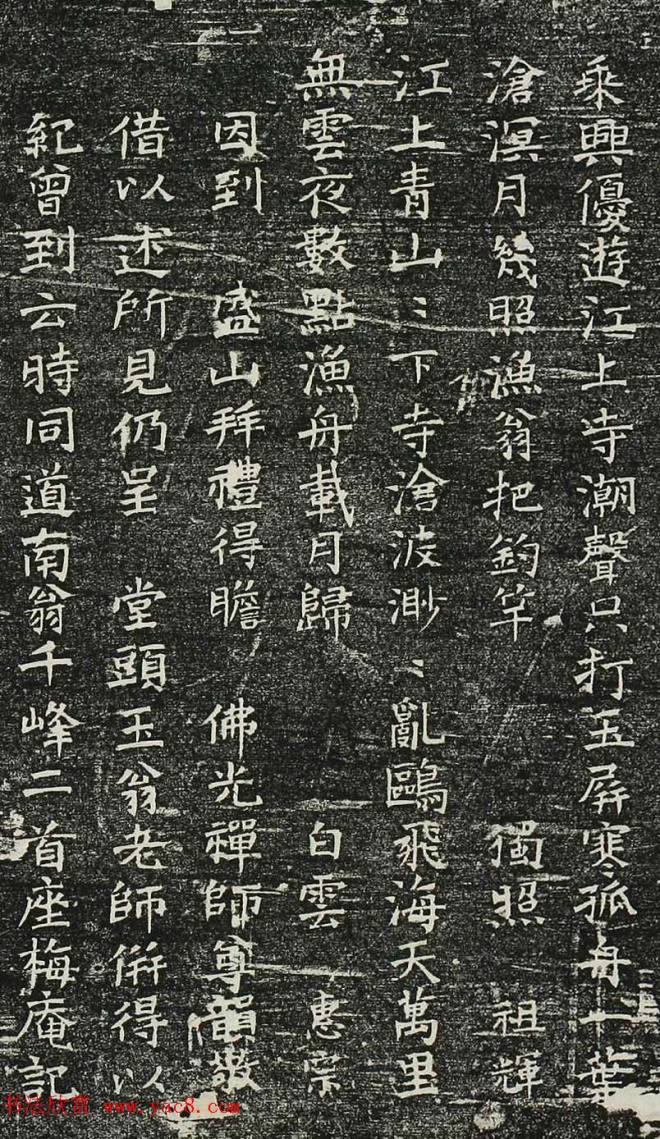 乘興優遊江上寺潮聲只打玉屏寒孤舟一葉
滄溟月幾照漁翁把釣竿　獨照　祖輝
江上青山〻下寺滄波渺〻亂鷗飛海天萬里
無雲夜數點漁舟載月歸　白雲　惠宗
因到　盛山拜禮得瞻　佛光禪師尊韻敬
借以述所見仍呈　堂頭玉翁老師併得以
紀曾到云時同道南翁千峰二首座梅庵記
书法欣赏 www.yac8.com